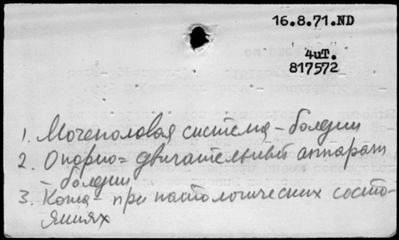 16.8.71.ND
4иT.
817572
1. Мочеполовая система - болезни
2. Опорно= двигательный аппарат
- болезни
3. Кожа - при патологических состо-
яниях